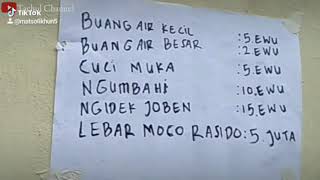 Techul Channel
TikTok
@matsolikhun5
BUANG AIR KECIL :5.EWU
BUANG AIR BESAR :2.EWU
CUCI MUKA :5.EWU
NGUMBAHI :10.EWU
NGIDEK JOBEN :15.EWU
LEBAR MOCO RASIDO :5.JUTA